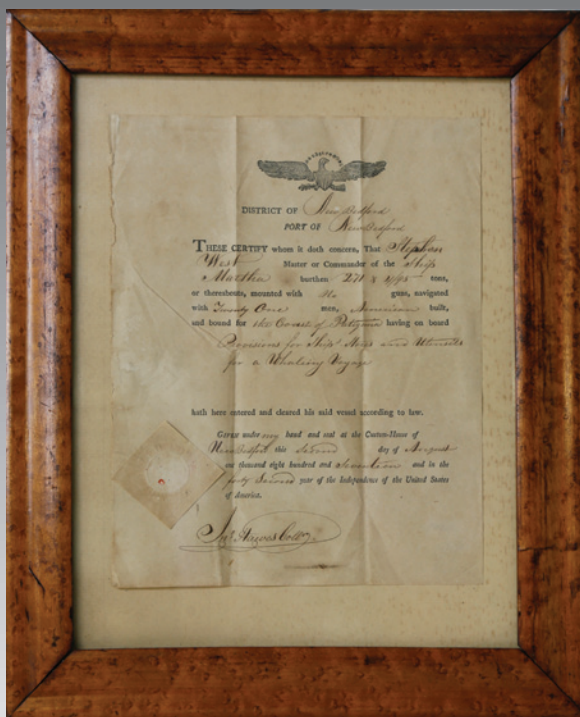 DISTRICT OF New Bedford
PORT OF New Bedford
THESE CERTIFY whom it doth concern, That Stephen
West Master or Commander of the Ship
Martha burthen 271 tons,
or thereabouts, mounted with No guns, navigated
with Twenty One men, American built,
and bound for the Coast of having on board
Provisions for Ship and Utensils
for a Whaling Voyage
hath here entered and cleared his said vessel according to law.
GIVEN under my hand and seal at the Custom-House of
New Bedford this Second day of August
one thousand eight hundred and Seventeen and in the
forty Second year of the Independence of the United States
of America.
Hawes Coll